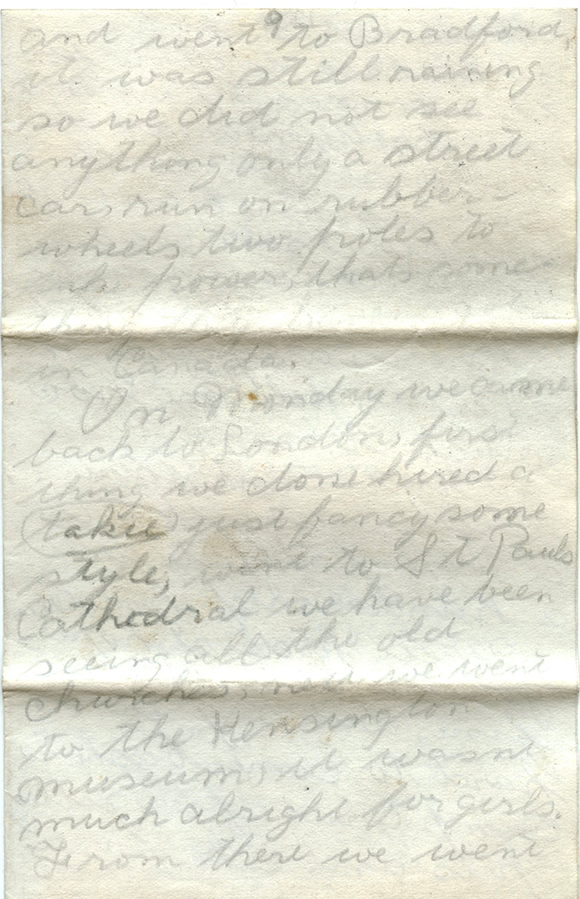 9
and went to Bradford,
it was still raining
so we did not see
anything only a street
cars run on rubber-
wheels two poles to
power, thats some-
in Canada.
On Monday we came
back to London, first
thing we done hired a
(takie) just fancy some
style, went to St Pauls
Cathedral we have been
seeing all the old
churches, next we went
to the Kensington
museum, it wasnt
much alright for girls.
From there we went